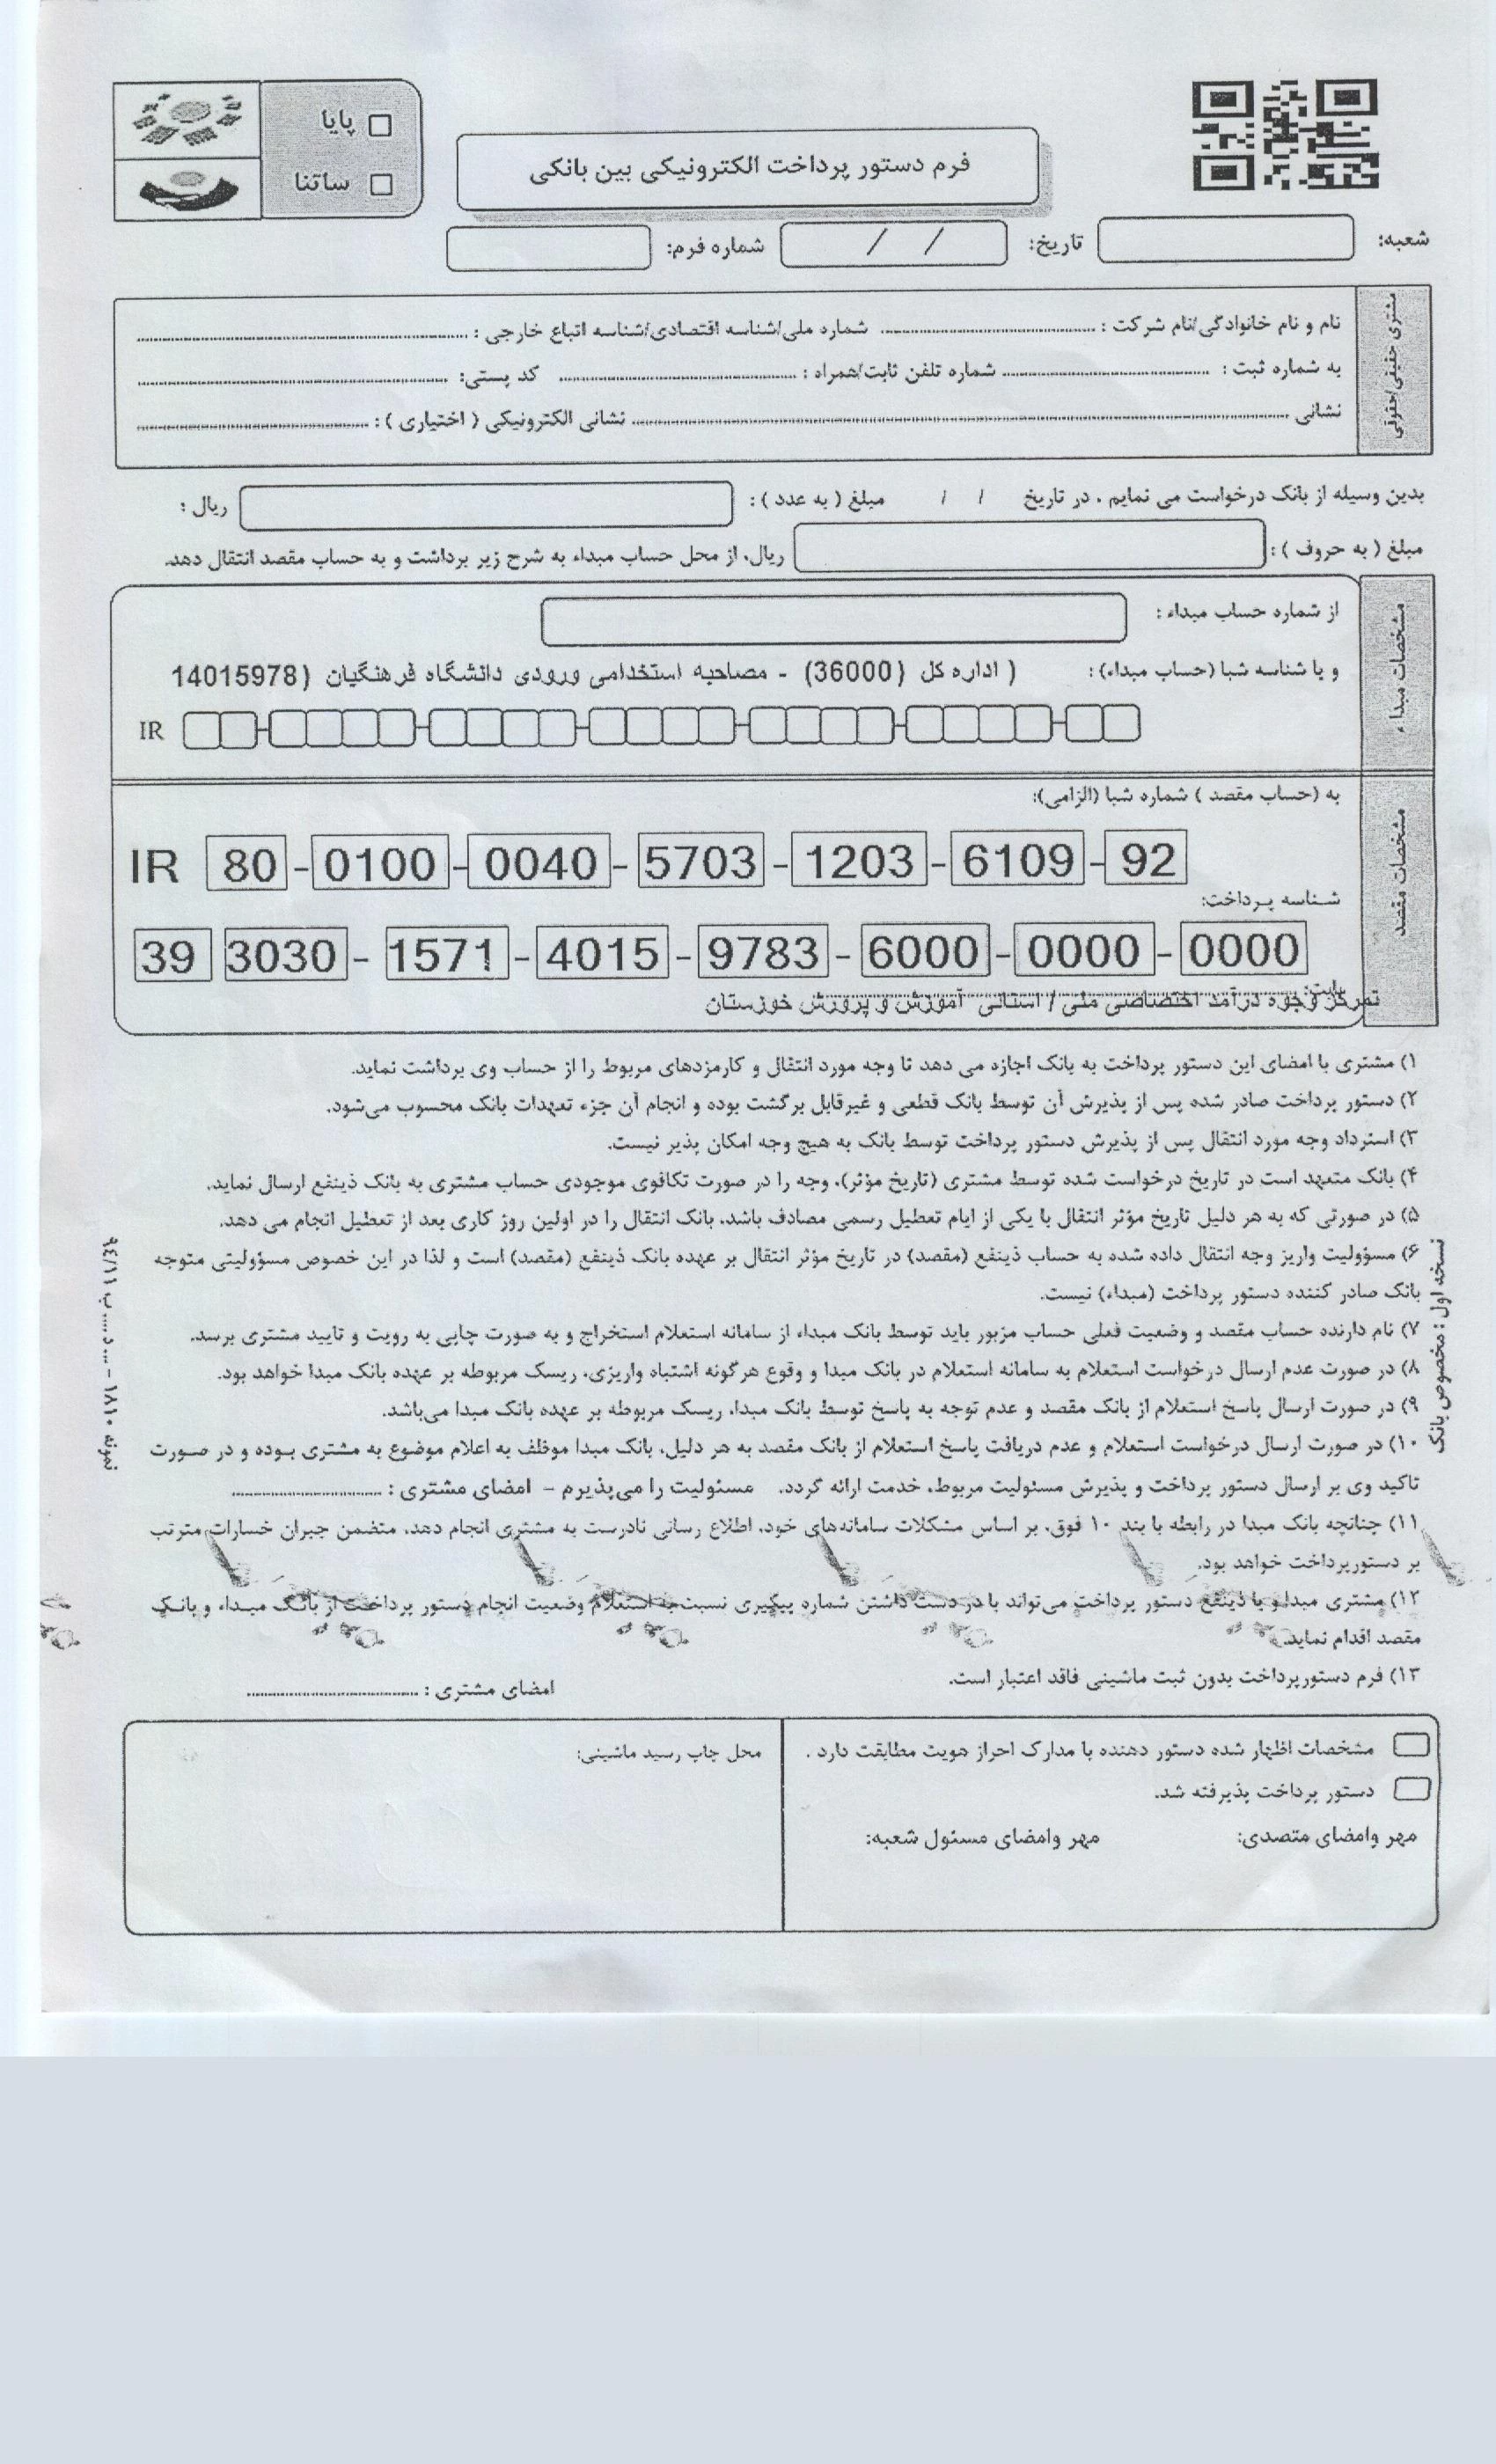 پایا
ساتنا
فرم دستور پرداخت الکترونیکی بین بانکی
شعبه: تاریخ: / / شماره فرم:
مشتری حقیقی/حقوقی
نام و نام خانوادگی/نام شرکت : شماره ملی/شناسه اقتصادی/شناسه اتباع خارجی :
به شماره ثبت : شماره تلفن ثابت/همراه : کد پستی:
نشانی نشانی الکترونیکی ( اختیاری ) :
بدین وسیله از بانک درخواست می نمایم ، در تاریخ / / مبلغ ( به عدد ) : ریال :
مبلغ ( به حروف ) : ریال، از محل حساب مبداء به شرح زیر برداشت و به حساب مقصد انتقال دهد.
مشخصات مبداء
از شماره حساب مبداء :
و یا شناسه شبا (حساب مبداء): ( اداره کل (36000) - مصاحبه استخدامی ورودی دانشگاه فرهنگیان (14015978
IR
مشخصات مقصد
به (حساب مقصد ) شماره شبا (الزامی):
IR 80-0100-0040-5703-1203-6109-92
شناسه پرداخت:
39 3030-1571-4015-9783-6000-0000-0000
بابت:
تمرکز وجوه درآمد اختصاصی ملی / استانی آموزش و پرورش خوزستان
۱) مشتری با امضای این دستور پرداخت به بانک اجازه می دهد تا وجه مورد انتقال و کارمزدهای مربوط را از حساب وی برداشت نماید.
۲) دستور پرداخت صادر شده پس از پذیرش آن توسط بانک قطعی و غیرقابل برگشت بوده و انجام آن جزء تعهدات بانک محسوب می‌شود.
۳) استرداد وجه مورد انتقال پس از پذیرش دستور پرداخت توسط بانک به هیچ وجه امکان پذیر نیست.
۴) بانک متعهد است در تاریخ درخواست شده توسط مشتری (تاریخ مؤثر)، وجه را در صورت تکافوی موجودی حساب مشتری به بانک ذینفع ارسال نماید.
۵) در صورتی که به هر دلیل تاریخ مؤثر انتقال با یکی از ایام تعطیل رسمی مصادف باشد، بانک انتقال را در اولین روز کاری بعد از تعطیل انجام می دهد.
۶) مسؤولیت واریز وجه انتقال داده شده به حساب ذینفع (مقصد) در تاریخ مؤثر انتقال بر عهده بانک ذینفع (مقصد) است و لذا در این خصوص مسؤولیتی متوجه
بانک صادر کننده دستور پرداخت (مبداء) نیست.
۷) نام دارنده حساب مقصد و وضعیت فعلی حساب مزبور باید توسط بانک مبداء از سامانه استعلام استخراج و به صورت چاپی به رویت و تایید مشتری برسد.
۸) در صورت عدم ارسال درخواست استعلام به سامانه استعلام در بانک مبدا و وقوع هرگونه اشتباه واریزی، ریسک مربوطه بر عهده بانک مبدا خواهد بود.
۹) در صورت ارسال پاسخ استعلام از بانک مقصد و عدم توجه به پاسخ توسط بانک مبدا، ریسک مربوطه بر عهده بانک مبدا می‌باشد.
۱۰) در صورت ارسال درخواست استعلام و عدم دریافت پاسخ استعلام از بانک مقصد به هر دلیل، بانک مبدا موظف به اعلام موضوع به مشتری بوده و در صورت
تاکید وی بر ارسال دستور پرداخت و پذیرش مسئولیت مربوط، خدمت ارائه گردد. مسئولیت را می‌پذیرم – امضای مشتری :
۱۱) چنانچه بانک مبدا در رابطه با بند ۱۰ فوق، بر اساس مشکلات سامانه‌های خود، اطلاع رسانی نادرست به مشتری انجام دهد، متضمن جبران خسارات مترتب
بر دستورپرداخت خواهد بود.
۱۲) مشتری مبدا و یا ذینفع دستور پرداخت می‌تواند با در دست داشتن شماره پیگیری نسبت به استعلام وضعیت انجام دستور پرداخت از بانک مبداء و بانک
مقصد اقدام نماید.
۱۳) فرم دستورپرداخت بدون ثبت ماشینی فاقد اعتبار است.
امضای مشتری :
نسخه اول : مخصوص بانک
نمونه ۱۸۱۰ – ... د..... ب ۹۴/۱۱
مشخصات اظهار شده دستور دهنده با مدارک احراز هویت مطابقت دارد .
دستور پرداخت پذیرفته شد.
مهر وامضای متصدی: مهر وامضای مسئول شعبه:
محل چاپ رسید ماشینی: